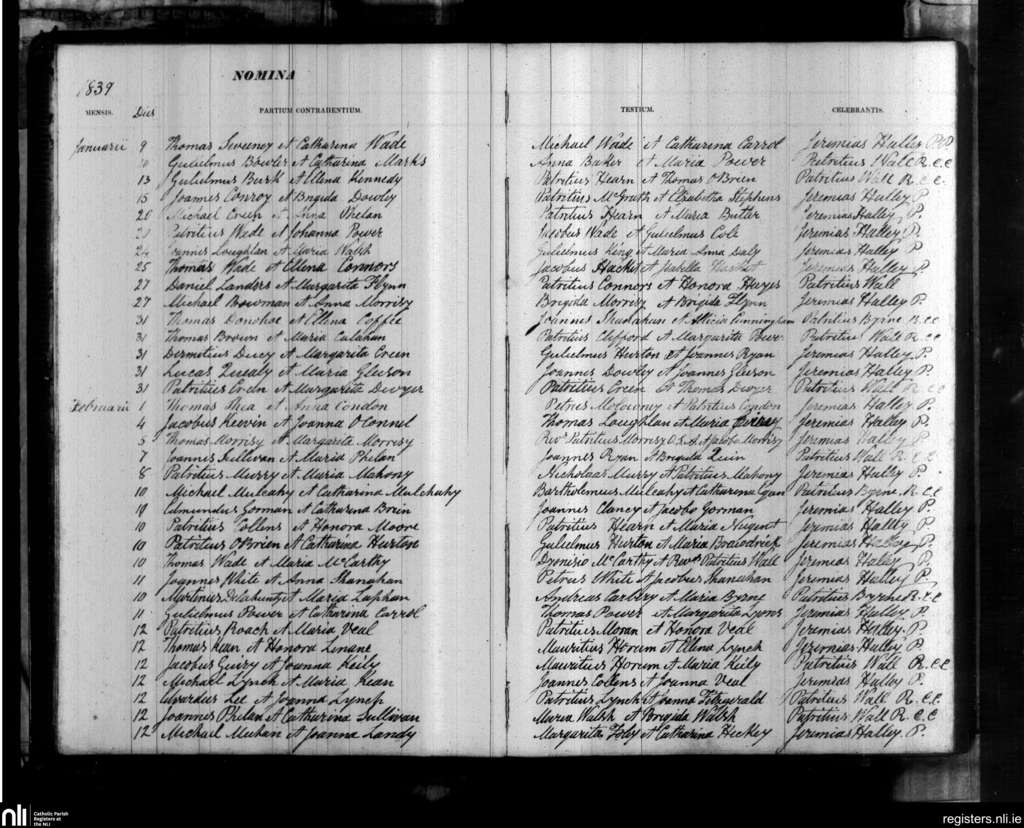 NOMINA
1839
MENSIS. Dies PARTIUM CONTRAHENTIUM. TESTIUM. CELEBRANTIS.
Januarii 9 Thomas Sweeney et Catharina Wade Michael Wade et Catharina Carrol Jeremias Halley P.P.
Gulielmus Bowler et Catharina Marks Anna Baker et Maria Power Patritius Wall R.C.C.
13 Gulielmus Burk et Ellena Kennedy Patritius Hearn et Thomas O'Brien Patritius Wall R.C.C.
15 Joannes Conroy et Brigida Dowley Patritius McGrath et Elizabetha Stephens Jeremias Halley P.
20 Michael Creen et Anna Phelan Patritius Hearn et Maria Butler Jeremias Halley P.
Patritius Wade et Johanna Power Jacobus Wade et Gulielmus Cole Jeremias Halley P.
24 Loughlan et Maria Walsh Gulielmus King et Maria Anna Daly Jeremias Halley P.
25 Thomas Wade et Ellena Connors Jacobus Hacket et Isabella Hacket Jeremias Halley P.
27 Daniel Landers et Margarita Flynn Patritius Connors et Honora Hayes Patritius Wall
27 Michael Bowman et Anna Morrisy Brigida Morrisy et Brigida Flynn Jeremias Halley P.
31 Thomas Donohoe et Ellena Coffee Joannes et Alicia Cunningham Patritius Byrne R.C.C.
31 Thomas Brown et Maria Calahan Patritius Clifford et Margarita Power Patritius Wall R.C.C.
31 Dermitius Ducy et Margarita Creen Gulielmus Hurton et Joannes Ryan Jeremias Halley P.
31 Lucas Quealy et Maria Gleeson Joannes Dowley et Joannes Gleeson Jeremias Halley P.
31 Patritius Creen et Margarita Dwyer Patritius Creen et Thomas Dwyer Patritius Wall R.C.C.
Februarii 1 Thomas Shea et Anna Condon Petrus Moloney et Patritius Condon Jeremias Halley P.
4 Jacobus Keevin et Joanna O'Connel Thomas Loughlan et Maria Jeremias Halley P.
5 Thomas Morrisy et Margarita Morrisy Revd Patritius Morrisy O.S.A. et Jacobo Morrisy Jeremias Halley P.
7 Joannes Sullivan et Maria Phelan Joannes Ryan et Brigida Quin Patritius Wall R.C.C.
8 Patritius Murry et Maria Mahony Nicholaas Murry et Patritius Mahony Jeremias Halley P.
10 Michael Mulcahy et Catharina Mulchahy Bartholemeus Mulcahy et Catharena Egan Patritius Byrne R.C.C.
10 Edmundus Gorman et Catharina Brien Joannes Clancy et Jacobo Gorman Jeremias Halley P.
10 Patritius Collens et Honora Moore Patritius Hearn et Maria Nugent Jeremias Halley P.
10 Patritius O'Brien et Catharina Hurton Gulielmus Hurton et Maria Broadrick Jeremias Halley P.
10 Thomas Wade et Maria McCarthy Dionisio McCarthy et Revd Patritius Wall Jeremias Halley P.
11 Joannes White et Anna Shanahan Petrus White et Jacobus Shanahan Jeremias Halley P.
10 Martinus Delahunty et Maria Laphan Andreas Carbery et Maria Byrny Patritius Byrne R.C.C.
11 Gulielmus Power et Catharina Carrol Thomas Power et Margarita Lyons Jeremias Halley P.
12 Patritius Roach et Maria Veal Patritius Moran et Honora Veal Jeremias Halley P.
12 Thomas Kean et Honora Linane Mauritius Horum et Ellena Lynch Jeremias Halley P.
12 Jacobus Guiry et Joanna Keily Mauritius Horum et Maria Keily Patritius Wall R.C.C.
12 Michael Lynch et Maria Kean Joannes Collens et Joanna Veal Jeremias Halley P.
12 Edvardus Lee et Joanna Lynch Patritius Lynch et Joanna Fitzgerald Patritius Wall R.C.C.
12 Joannes Phelan et Catharina Sullivan Maria Walsh et Brigida Walsh Patritius Wall R.C.C.
12 Michael Mehan et Joanna Landy Margarita Foley et Catharina Hickey Jeremias Halley P.
nli Catholic Parish Registers at the NLI
registers.nli.ie